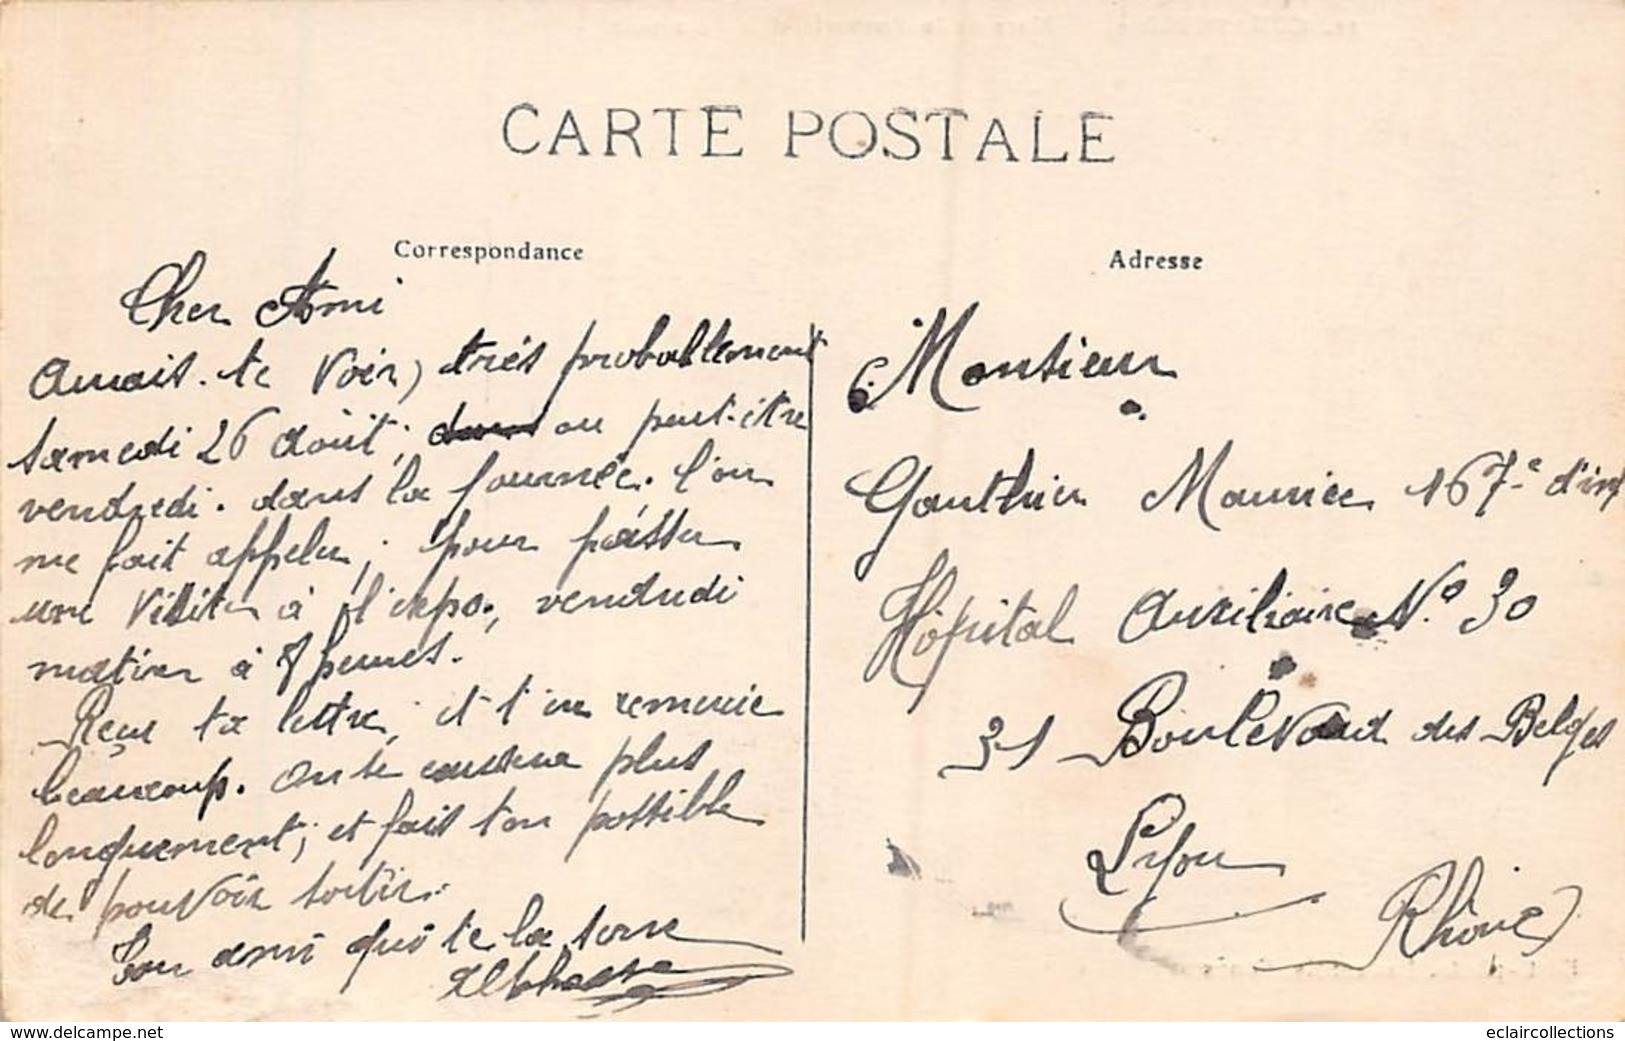 CARTE POSTALE
Correspondance
Cher Ami
amais te voir, très probablement
samedi 26 août, ou peut-être
vendredi. dans la journée. l'on
me fait appeler, pour passer
une visite à l'expo., vendredi
matin à 7 heures.
Reçu ta lettre, et t'en remercie
beaucoup. On se causera plus
longuement; et fais ton possible
de pouvoir sortir.
Ton ami qui te la serre
Adresse
Monsieur
Gauthier Maurice 167e d'inf
Hôpital Auxiliaire No 30
31 Boulevard des Belges
Lyon
Rhône
www.delcampe.net
eclaircollections